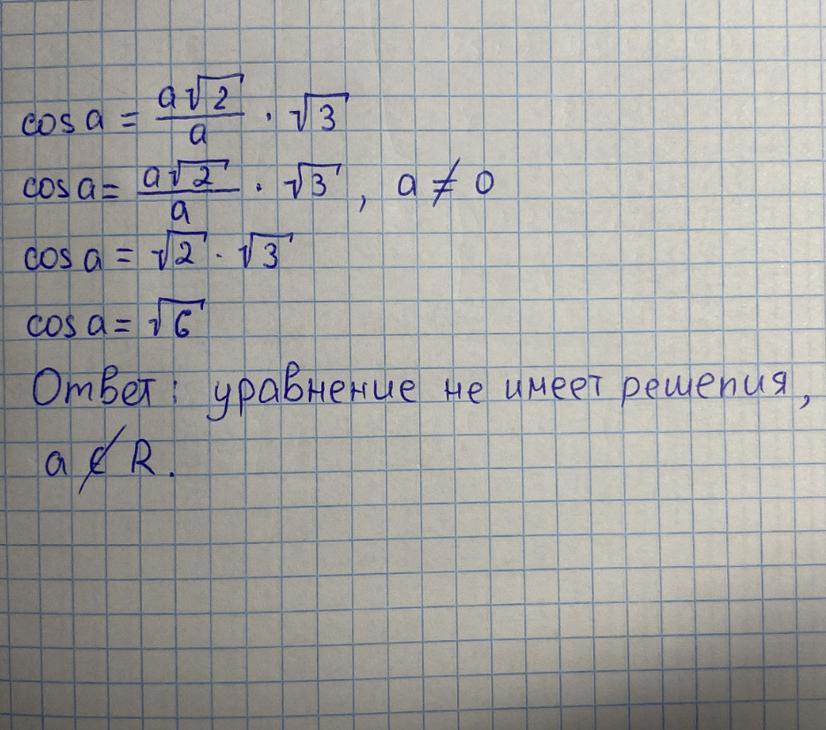 cos a = a√2/a · √3
cos a = a√2/a · √3, a ≠ 0
cos a = √2 · √3
cos a = √6
Ответ: уравнение не имеет решепия,
a ∉ R.